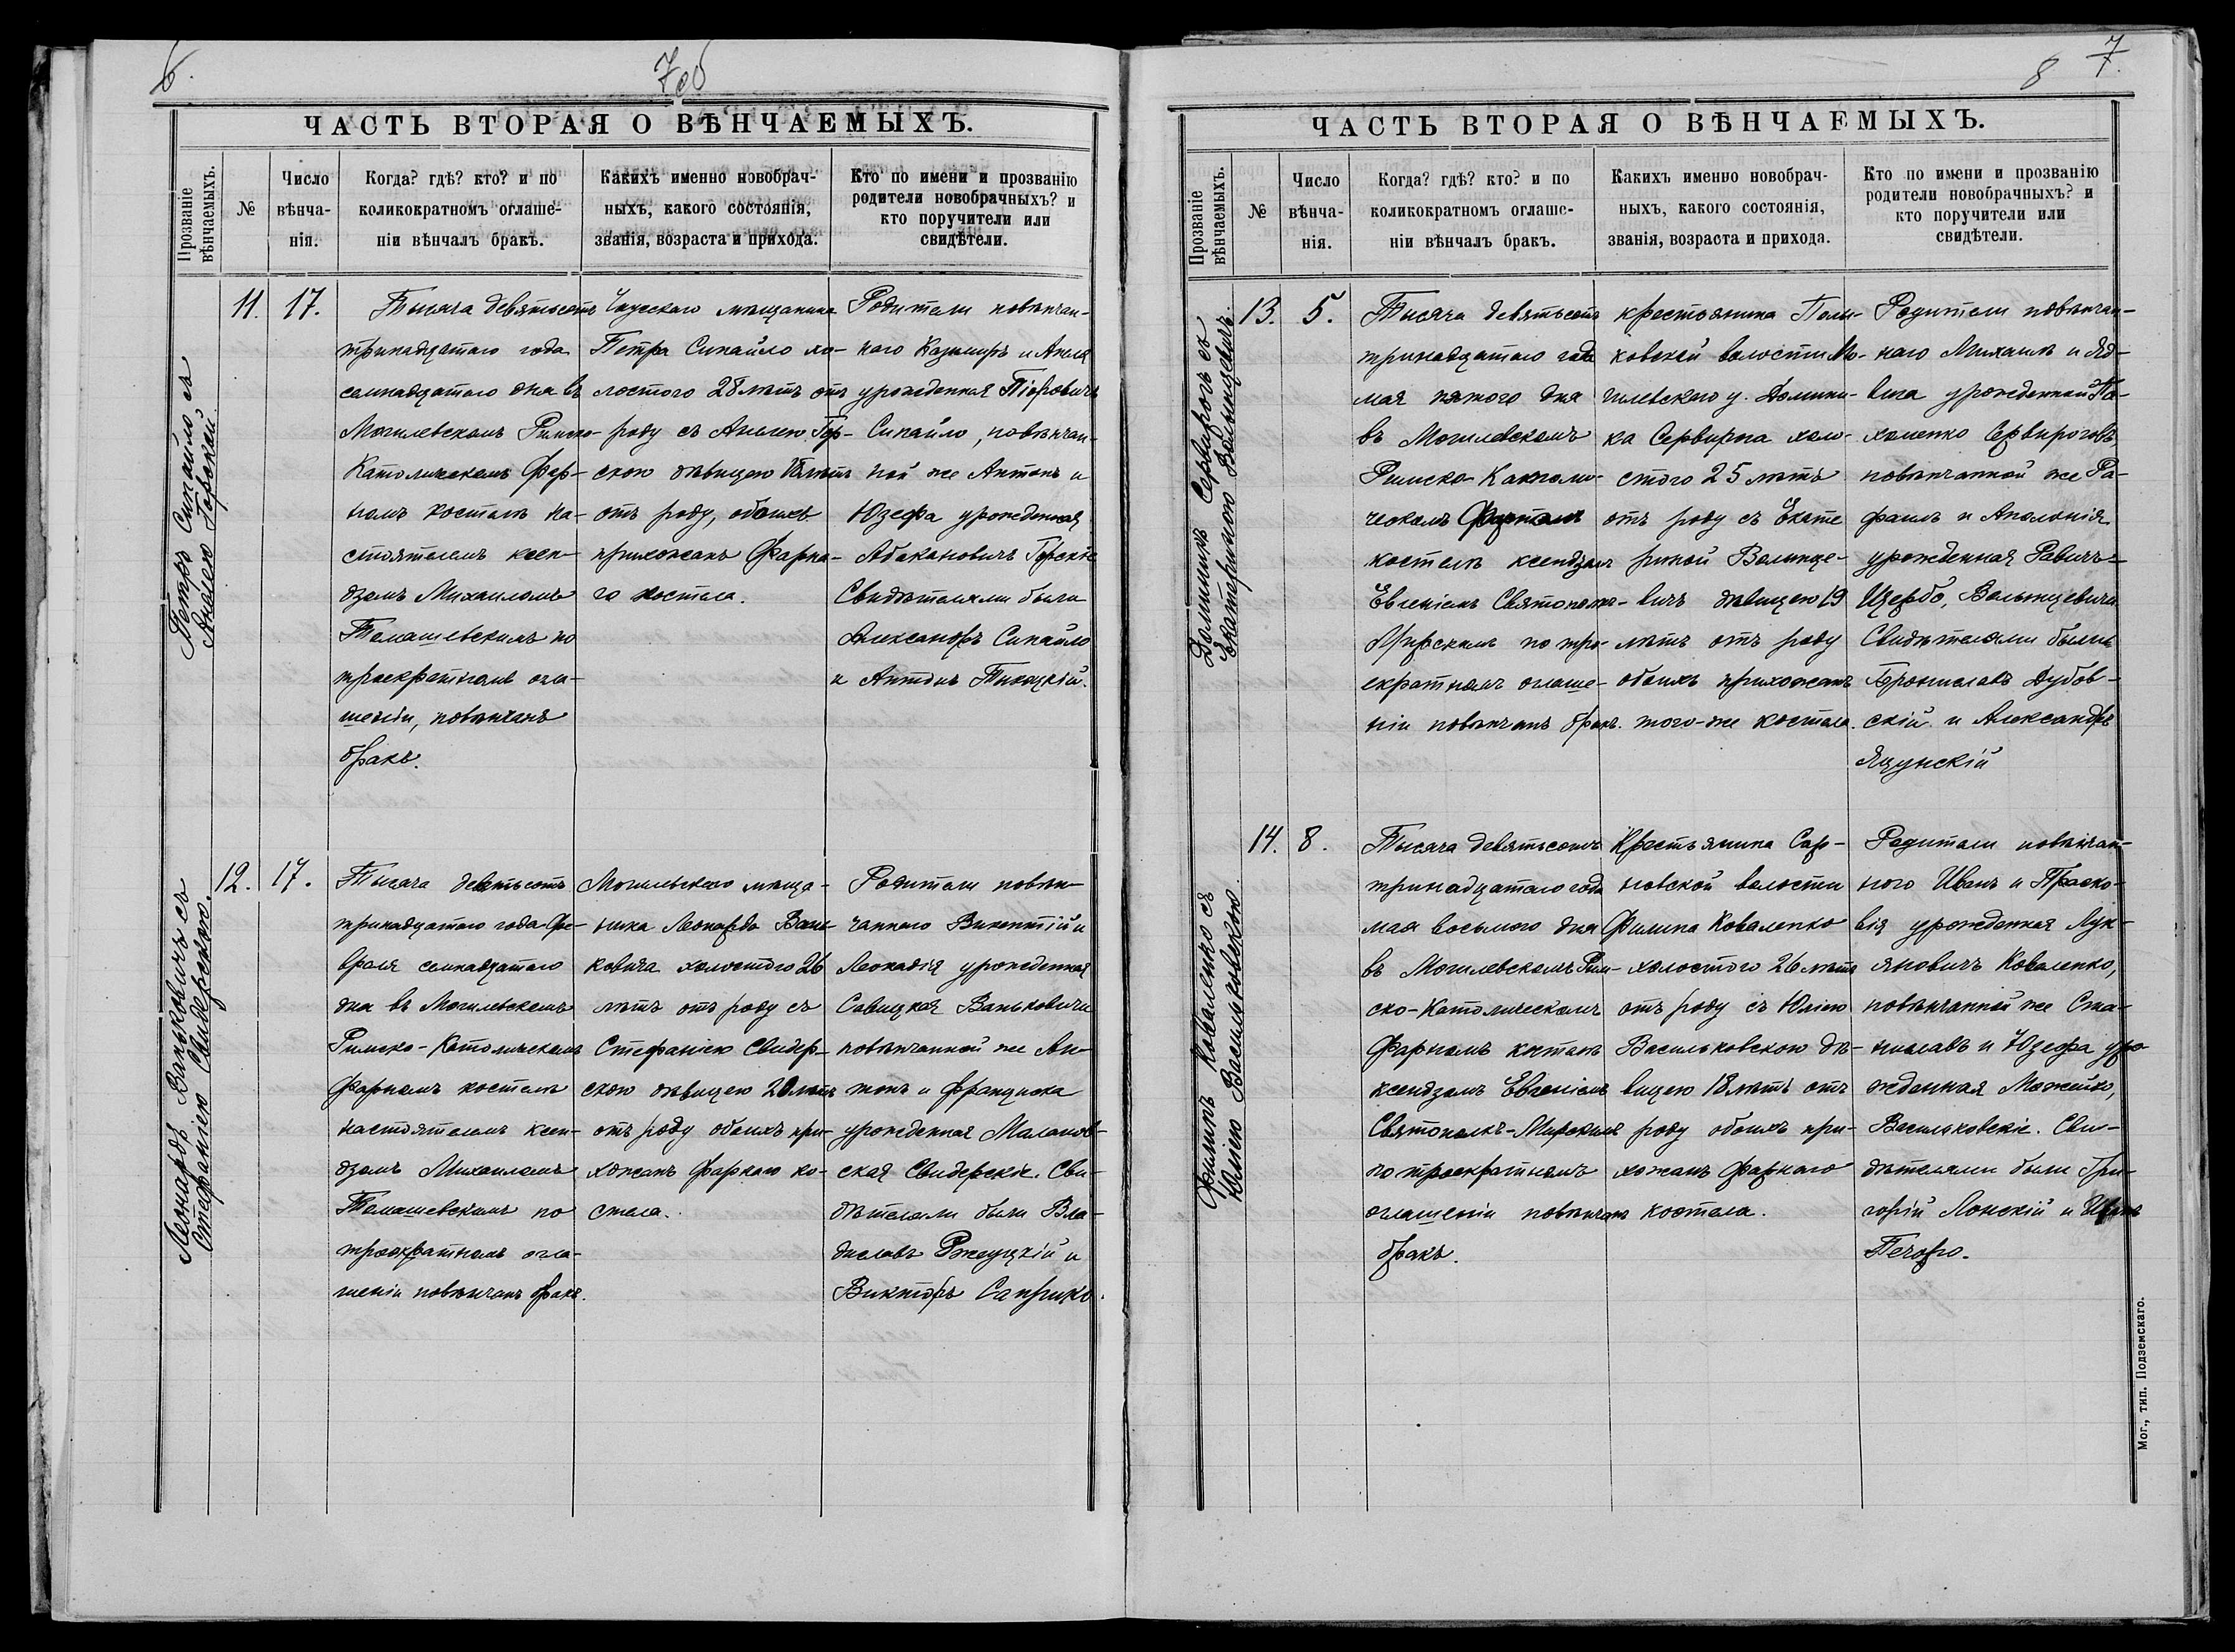 6.
7об
ЧАСТЬ ВТОРАЯ О ВѢНЧАЕМЫХЪ.
Прозваніе
вѣнчаемыхъ.
№
Число
вѣнча-
нія.
Когда? гдѣ? кто? и по
коликократномъ оглаше-
ніи вѣнчалъ бракъ.
Какихъ именно новобрач-
ныхъ, какого состоянія,
званія, возраста и прихода.
Кто по имени и прозванію
родители новобрачныхъ? и
кто поручители или
свидѣтели.
Петръ Сипайло съ
Анелею Горской
11.
17.
Тысяча девятьсотъ
тринадцатаго года
семнадцатаго дня въ
Могилевскомъ Римско-
Католическомъ Фар-
номъ костелѣ на-
стоятелемъ ксен-
дзомъ Михаиломъ
Томашевскимъ по
троекратномъ огла-
шеніи, повѣнчанъ
бракъ.
Чаусскаго мѣщанина
Петра Сипайло хо-
лостого 28 лѣтъ отъ
роду съ Анелею Гор-
скою дѣвицею лѣтъ
отъ роду, обоихъ
прихожанъ Фарна-
го костела.
Родители повѣнчан-
наго Казимиръ и Анеля
урожденная Піоровичъ
Сипайло, повѣнчан-
ной же Антонъ и
Юзефа урожденная
Абакановичъ Горскіе
Свидѣтелями были
Александръ Сипайло
и Антонъ
Леонардъ Ваньковичъ съ
Стефаніею Свидерскою.
12.
17.
Тысяча девятьсотъ
тринадцатаго года Фе-
враля семнадцатаго
дня въ Могилевскомъ
Римско-Католическомъ
Фарномъ костелѣ
настоятелемъ ксен-
дзомъ Михаиломъ
Томашевскимъ по
троекратномъ огла-
шеніи повѣнчанъ бракъ.
Могилевскаго мѣща-
нина Леонарда Вань-
ковича холостого 26
лѣтъ отъ роду съ
Стефаніею Свидер-
скою дѣвицею 20 лѣтъ
отъ роду обоихъ при-
хожанъ Фарнаго ко-
стела.
Родители повѣн-
чаннаго Викентій и
Леокадія урожденная
Савицкая Ваньковичи
повѣнчанной же Ан-
тонъ и Франциска
урожденная Маланов-
ская Свидерскіе. Сви-
дѣтелями были Вла-
диславъ Ржеуцкій и
Викторъ Саприко.
8
7
7.
ЧАСТЬ ВТОРАЯ О ВѢНЧАЕМЫХЪ.
Прозваніе
вѣнчаемыхъ.
№
Число
вѣнча-
нія.
Когда? гдѣ? кто? и по
коликократномъ оглаше-
ніи вѣнчалъ бракъ.
Какихъ именно новобрач-
ныхъ, какого состоянія,
званія, возраста и прихода.
Кто по имени и прозванію
родители новобрачныхъ? и
кто поручители или
свидѣтели.
Доминикъ Сервирогъ съ
Екатериною Волынцевичъ
13.
5.
Тысяча девятьсотъ
тринадцатаго года
мая пятого дня
въ Могилевскомъ
Римско-Католи-
ческомъ
костелѣ ксендзомъ
Евгеніемъ Святополкъ-
Мирскимъ по тро-
екратномъ оглаше-
ніи повѣнчанъ бракъ.
крестьянина Поли-
ковской волости Мо-
гилевскаго у. Домини-
ка Сервирога холо-
стого 25 лѣтъ
отъ роду съ Екате
риной Волынце-
вичъ дѣвицею 19
лѣтъ отъ роду
обоихъ прихожанъ
того-же костела.
Родители повѣнчан-
наго Михаилъ и Яд-
вига урожденная Па-
хоменко Сервироговъ
повѣнчанной же Ра-
фаилъ и Аполонія
урожденная Равичъ-
Щербо, Волынцевичи
Свидѣтелями были
Брониславъ Дубов-
скій и Александръ
Яцунскій
Филипъ Коваленко съ
Юліею Васильковскою.
14.
8.
Тысяча девятьсотъ
тринадцатаго года
мая восьмого дня
въ Могилевскомъ Рим-
ско-Католическомъ
Фарномъ костелѣ
ксендзомъ Евгеніемъ
Святополкъ-Мирскимъ
по троекратномъ
оглашеніи повѣнчанъ
бракъ.
Крестьянина Сар-
новской волости
Филипа Коваленко
холостого 26 лѣтъ
отъ роду съ Юліею
Васильковскою дѣ-
вицею 18 лѣтъ отъ
роду обоихъ при-
хожанъ Фарнаго
костела.
Родители повѣнчан-
ного Иванъ и Праско-
вія урожденная Лук-
яновичъ Коваленко,
повѣнчанной же Ста-
ниславъ и Юзефа уро
жденная Можейко,
Васильковскіе. Сви-
дѣтелями были Гри-
горій Лонскій и Иванъ
Печоро.
Мог., тип. Подземскаго.